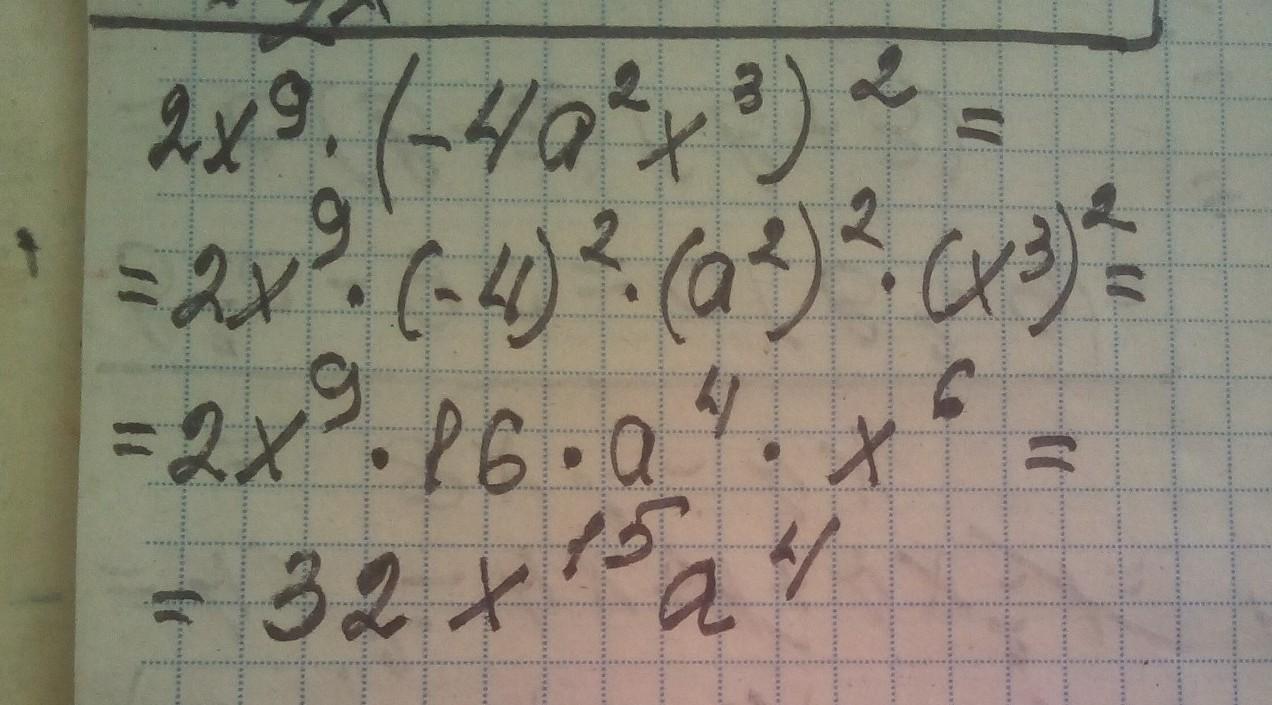 2x⁹ · (-4a²x³)² =
= 2x⁹ · (-4)² · (a²)² · (x³)² =
= 2x⁹ · 16 · a⁴ · x⁶ =
= 32x¹⁵a⁴